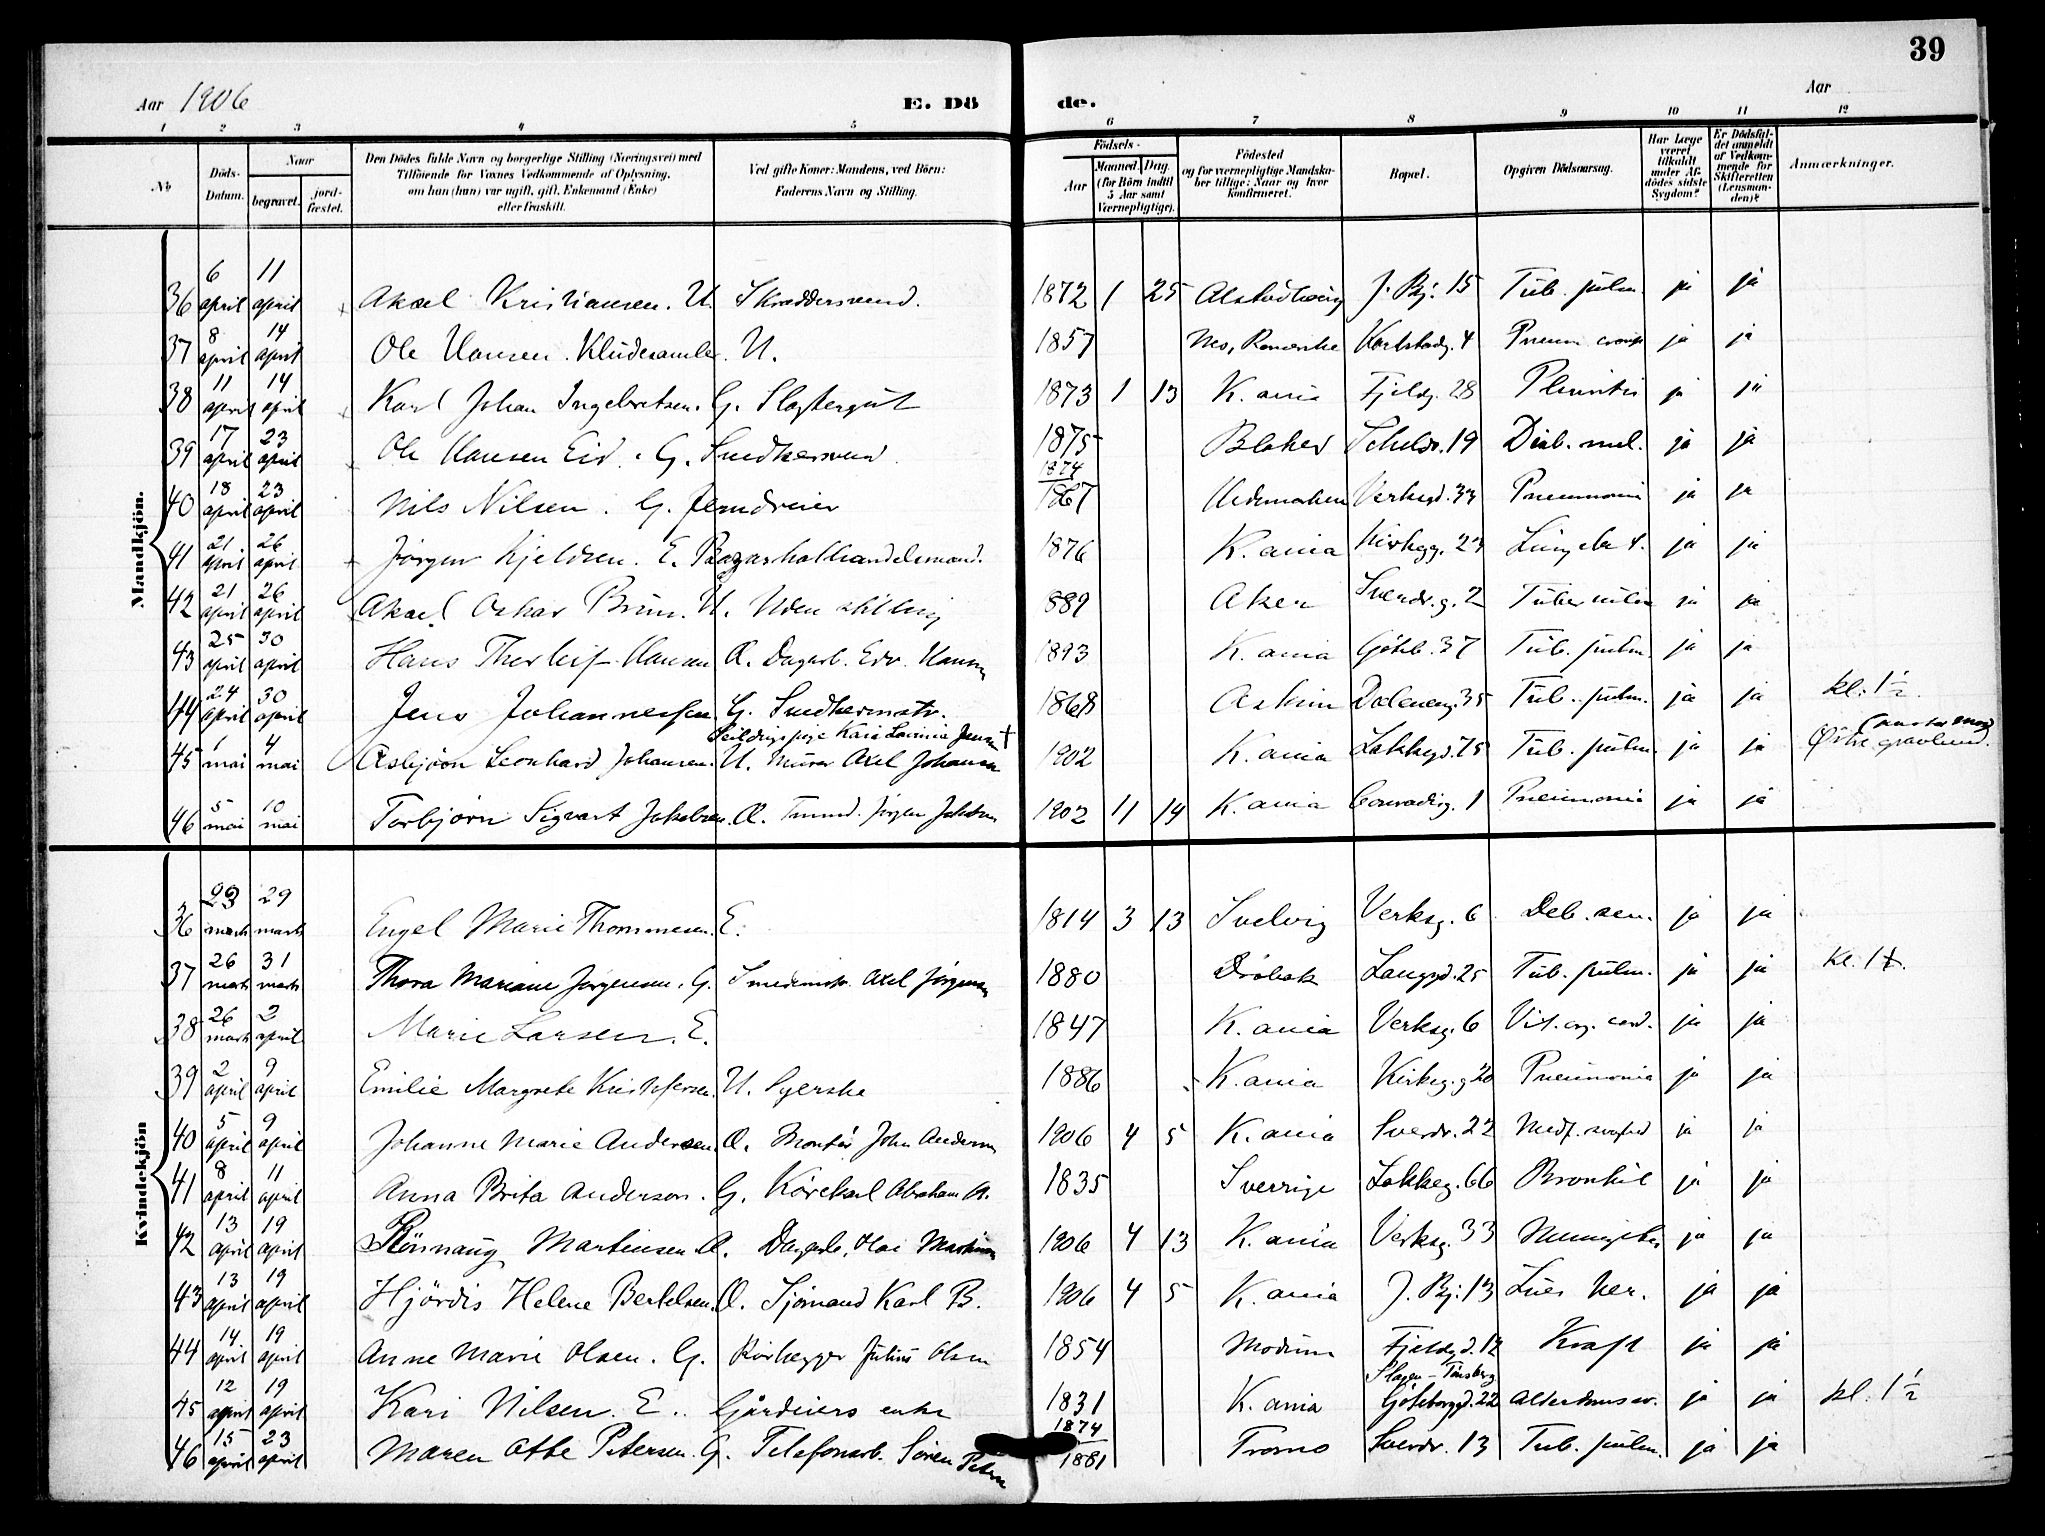 39
Aar 1906 E. Dö de. Aar
1 2 3 4 5 6 7 8 9 10 11 12
No
Döds-
Datum.
Naar
begravet.
jord-
fæstet.
Den Dödes fulde Navn og borgerlige Stilling (Næringsvei) med
Tilföiende for Voxnes Vedkommende af Oplysning,
om han (hun) var ugift, gift, Enkemand (Enke)
eller fraskilt.
Ved gifte Koner: Mandens, ved Börn:
Faderens Navn og Stilling.
Födsels-
Aar
Maaned. Dag.
(for Börn indtil
5 Aar samt
Værnepligtige).
Födested
og for værnepligtige Mandska-
ber tillige: Naar og hvor
konfirmeret.
Bopæl.
Opgiven Dödsaarsag.
Har Læge
været
tilkaldt
under Af-
dödes sidste
Sygdom?
Er Dödsfal-
det anmeldt
af Vedkom-
mende for
Skifteretten
(Lensman-
den)?
Anmærkninger.
Mandkjön.
36 6 april 11 april Aksel Kristiansen. U. Skræddersvend. 1872 1 25 J. Bj. 15 Tub. pulm. ja ja
37 8 april 14 april Ole Hansen. Kludesamler U. 1857 Nes, Romerike Karlstadg. 4 Pneum croup ja ja
38 11 april 14 april Karl Johan Ingebretsen. G. Slagtergut 1873 1 13 K.ania Fjeldg. 28 Pleuritis ja ja
39 17 april 23 april Ole Hansen Eid. G. Snedkersvend 1875 Blaker Schulzr. 19 Diab. mel. ja ja
40 18 april 23 april Nils Nilsen. G. Jerndreier 1874 1867 Hedemarken Verksgd. 33 Pneumonia ja ja
41 21 april 26 april Jörgen Kjeldsen. E. 1876 K.ania Kirkegg. 23 ja ja
42 21 april 26 april Aksel Oskar Brun. U. Uden stilling 889 Aker Sverdr.g. 2 ja ja
43 25 april 30 april Hans Thorleif Hansen Æ. Dagarb. Edv. Hansen 1893 K.ania Göteb. 37 Tub. pulm. ja ja
44 24 april 30 april Jens Johannessen G. Snedkermstr. 1868 Askim Daleneng. 35 Tub. pulm. ja ja kl. 1½.
45 1 mai 4 mai Asbjörn Leonhard Johansen. U. Murer Axel Johansen 1902 K.ania Lakkegd. 75 Tub. pulm. ja ja Østre gravlund.
46 5 mai 10 mai Torbjörn Sigvart Jakobsen. Æ. Jörgen Jakobsen 1902 11 14 K.ania Conradig. 1 Pneumonia ja ja
Kvindekjön
36 23 marts 29 marts Engel Marie Thommesen. E. 1814 3 13 Svelvig Verksg. 6 Deb. sen. ja ja
37 26 marts 31 marts Thora Mariane Jörgensen. G. Smedemstr. Axel Jörgensen 1880 Dröbak Langgd. 25 Tub. pulm. ja ja
38 26 marts 2 april Marie Larsen. E. 1847 K.ania Verksg. 6 Vit. org. cord. ja ja
39 2 april 9 april Emilie Margrete Kristofersen. U. Syerske 1886 K.ania Kirkeg.g 20 Pneumonia ja ja
40 5 april 9 april Johanne Marie Andersen. Æ. John Andersen 1906 4 5 K.ania Sverdr. 22 Medf. svaghed ja ja
41 8 april 11 april Anna Brita Anderson. G. Körekarl Abraham A. 1835 Sverrige Lakkeg. 66 Bronkit ja ja
42 13 april 19 april Rönnaug Martinsen Æ. Dagarb. Olai Martinsen 1906 4 13 K.ania Verksg. 33 Meningitis ja ja
43 13 april 19 april Hjördis Helene Bertelsen. Æ. Sjömand Karl B. 1906 4 5 K.ania J. Bj. 13 Lues her. ja ja
44 14 april 19 april Anne Marie Olsen. G. Rörlægger Julius Olsen 1854 Modum Fjeldgd. 12 Kræft ja ja
45 12 april 19 april Kari Nilsen. E. Gårdeiers enke 1831 K.ania Slagen - Tönsberg Göteborggd. 22 Alderdomssv. ja ja kl. 1½
46 15 april 23 april Maren Atte Petersen. G. Telefonarb. Sören Petersen 1874 1881 Tromö Sverdr. 13 Tub. pulm. ja ja